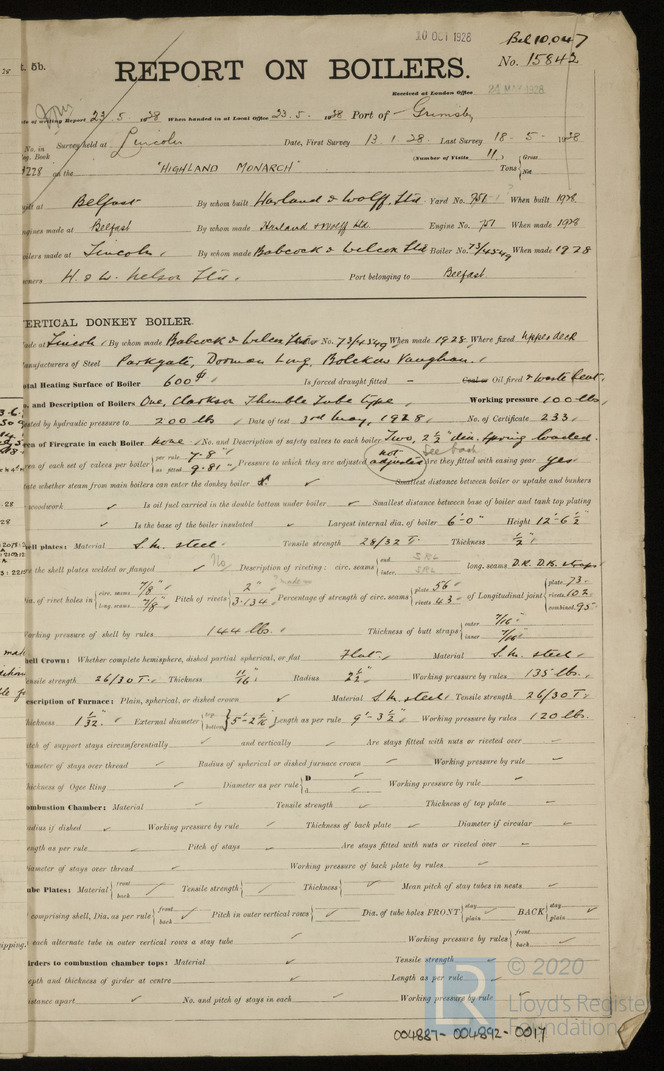 10 OCT 1928
Bel 10.047
t. 5b.
REPORT ON BOILERS.
No. 15842
Received at London Office 24 MAY 1928
te of writing Report 23.5.1928 When handed in at Local Office 23.5.1928 Port of Grimsby
No. in Survey held at Lincoln Date, First Survey 13.1.28. Last Survey 18-5-1928
g. Book (Number of Visits 11)
on the "HIGHLAND MONARCH" Tons { Gross Net
ilt at Belfast By whom built Harland & Wolff Ltd. Yard No. 751 When built 1928
gines made at Belfast By whom made Harland & Wolff Ltd. Engine No. 751 When made 1928
ilers made at Lincoln By whom made Babcock & Wilcox Ltd Boiler No. 73/4549 When made 1928
ners H. & W. Nelson Ltd. Port belonging to Belfast
VERTICAL DONKEY BOILER.
ade at Lincoln By whom made Babcock & Wilcox Ltd No. 73/4549 When made 1928 Where fixed Upper deck
anufacturers of Steel Parkgate, Dorman Long, Bolckow Vaughan.
otal Heating Surface of Boiler 600 Is forced draught fitted - Coal or Oil fired & Waste heat
o. and Description of Boilers One, Clarkson Thimble Tube type Working pressure 100 lbs
ested by hydraulic pressure to 200 lbs Date of test 3rd May, 1928 No. of Certificate 233
rea of Firegrate in each Boiler none No. and Description of safety valves to each boiler Two, 2½" dia. Spring loaded.
See back
rea of each set of valves per boiler { per rule 7.8 as fitted 9.81 Pressure to which they are adjusted not adjusted Are they fitted with easing gear yes
tate whether steam from main boilers can enter the donkey boiler ✓ Smallest distance between boiler or uptake and bunkers
r woodwork ✓ Is oil fuel carried in the double bottom under boiler ✓ Smallest distance between base of boiler and tank top plating
✓ Is the base of the boiler insulated ✓ Largest internal dia. of boiler 6'-0" Height 12'-6½"
hell plates: Material S.M. steel Tensile strength 28/32 T. Thickness ½"
re the shell plates welded or flanged No Description of riveting: circ. seams { end S.R.L. inter. S.R.L. long. seams D.R. D.B. straps
ia. of rivet holes in { circ. seams 7/8" long. seams 7/8" Pitch of rivets { 2" 3.134 Percentage of strength of circ. seams { plate 56 rivets 43 of Longitudinal joint { plate 73. rivets 102 combined 95
orking pressure of shell by rules 144 lb. Thickness of butt straps { outer 7/16" inner 7/16"
hell Crown: Whether complete hemisphere, dished partial spherical, or flat Flat Material S.M. steel
ensile strength 26/30 T. Thickness 11/16" Radius Working pressure by rules 135 lb.
escription of Furnace: Plain, spherical, or dished crown ✓ Material S.M. steel Tensile strength 26/30 T.
hickness External diameter { top bottom Length as per rule 9'-3½" Working pressure by rules 120 lb.
itch of support stays circumferentially ✓ and vertically ✓ Are stays fitted with nuts or riveted over ✓
iameter of stays over thread ✓ Radius of spherical or dished furnace crown ✓ Working pressure by rule ✓
hickness of Ogee Ring ✓ Diameter as per rule { D d ✓ Working pressure by rule ✓
ombustion Chamber: Material ✓ Tensile strength ✓ Thickness of top plate ✓
adius if dished ✓ Working pressure by rule ✓ Thickness of back plate ✓ Diameter if circular ✓
ength as per rule ✓ Pitch of stays ✓ Are stays fitted with nuts or riveted over ✓
iameter of stays over thread ✓ Working pressure of back plate by rules ✓
ube Plates: Material { front back Tensile strength { Thickness { Mean pitch of stay tubes in nests ✓
comprising shell, Dia. as per rule { front back ✓ Pitch in outer vertical rows { ✓ Dia. of tube holes FRONT { stay plain ✓ BACK { stay plain ✓
each alternate tube in outer vertical rows a stay tube ✓ Working pressure by rules { front back ✓
irders to combustion chamber tops: Material ✓ Tensile strength ✓
epth and thickness of girder at centre ✓ Length as per rule ✓
istance apart ✓ No. and pitch of stays in each ✓ Working pressure by rule ✓
LR © 2020
Lloyd's Registe
Foundation
004887-004892-0017